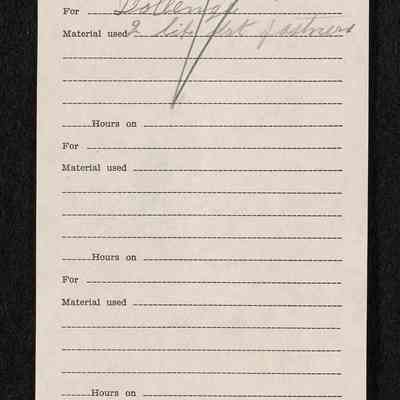 For
Material used 2
Hours on
For
Material used
Hours on
For
Material used
Hours on